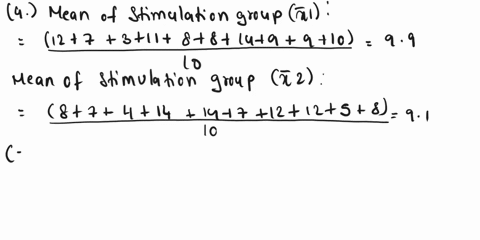 (4.) Mean of Stimulation group (x̄1) :
= (12+7 + 3+11+ 8+8+14+9 + 9+10) / 10 = 9.9
Mean of Stimulation group (x̄2) :
= (8+7+ 4+14 +14+7 +12+12+5+8) / 10 = 9.1
(-